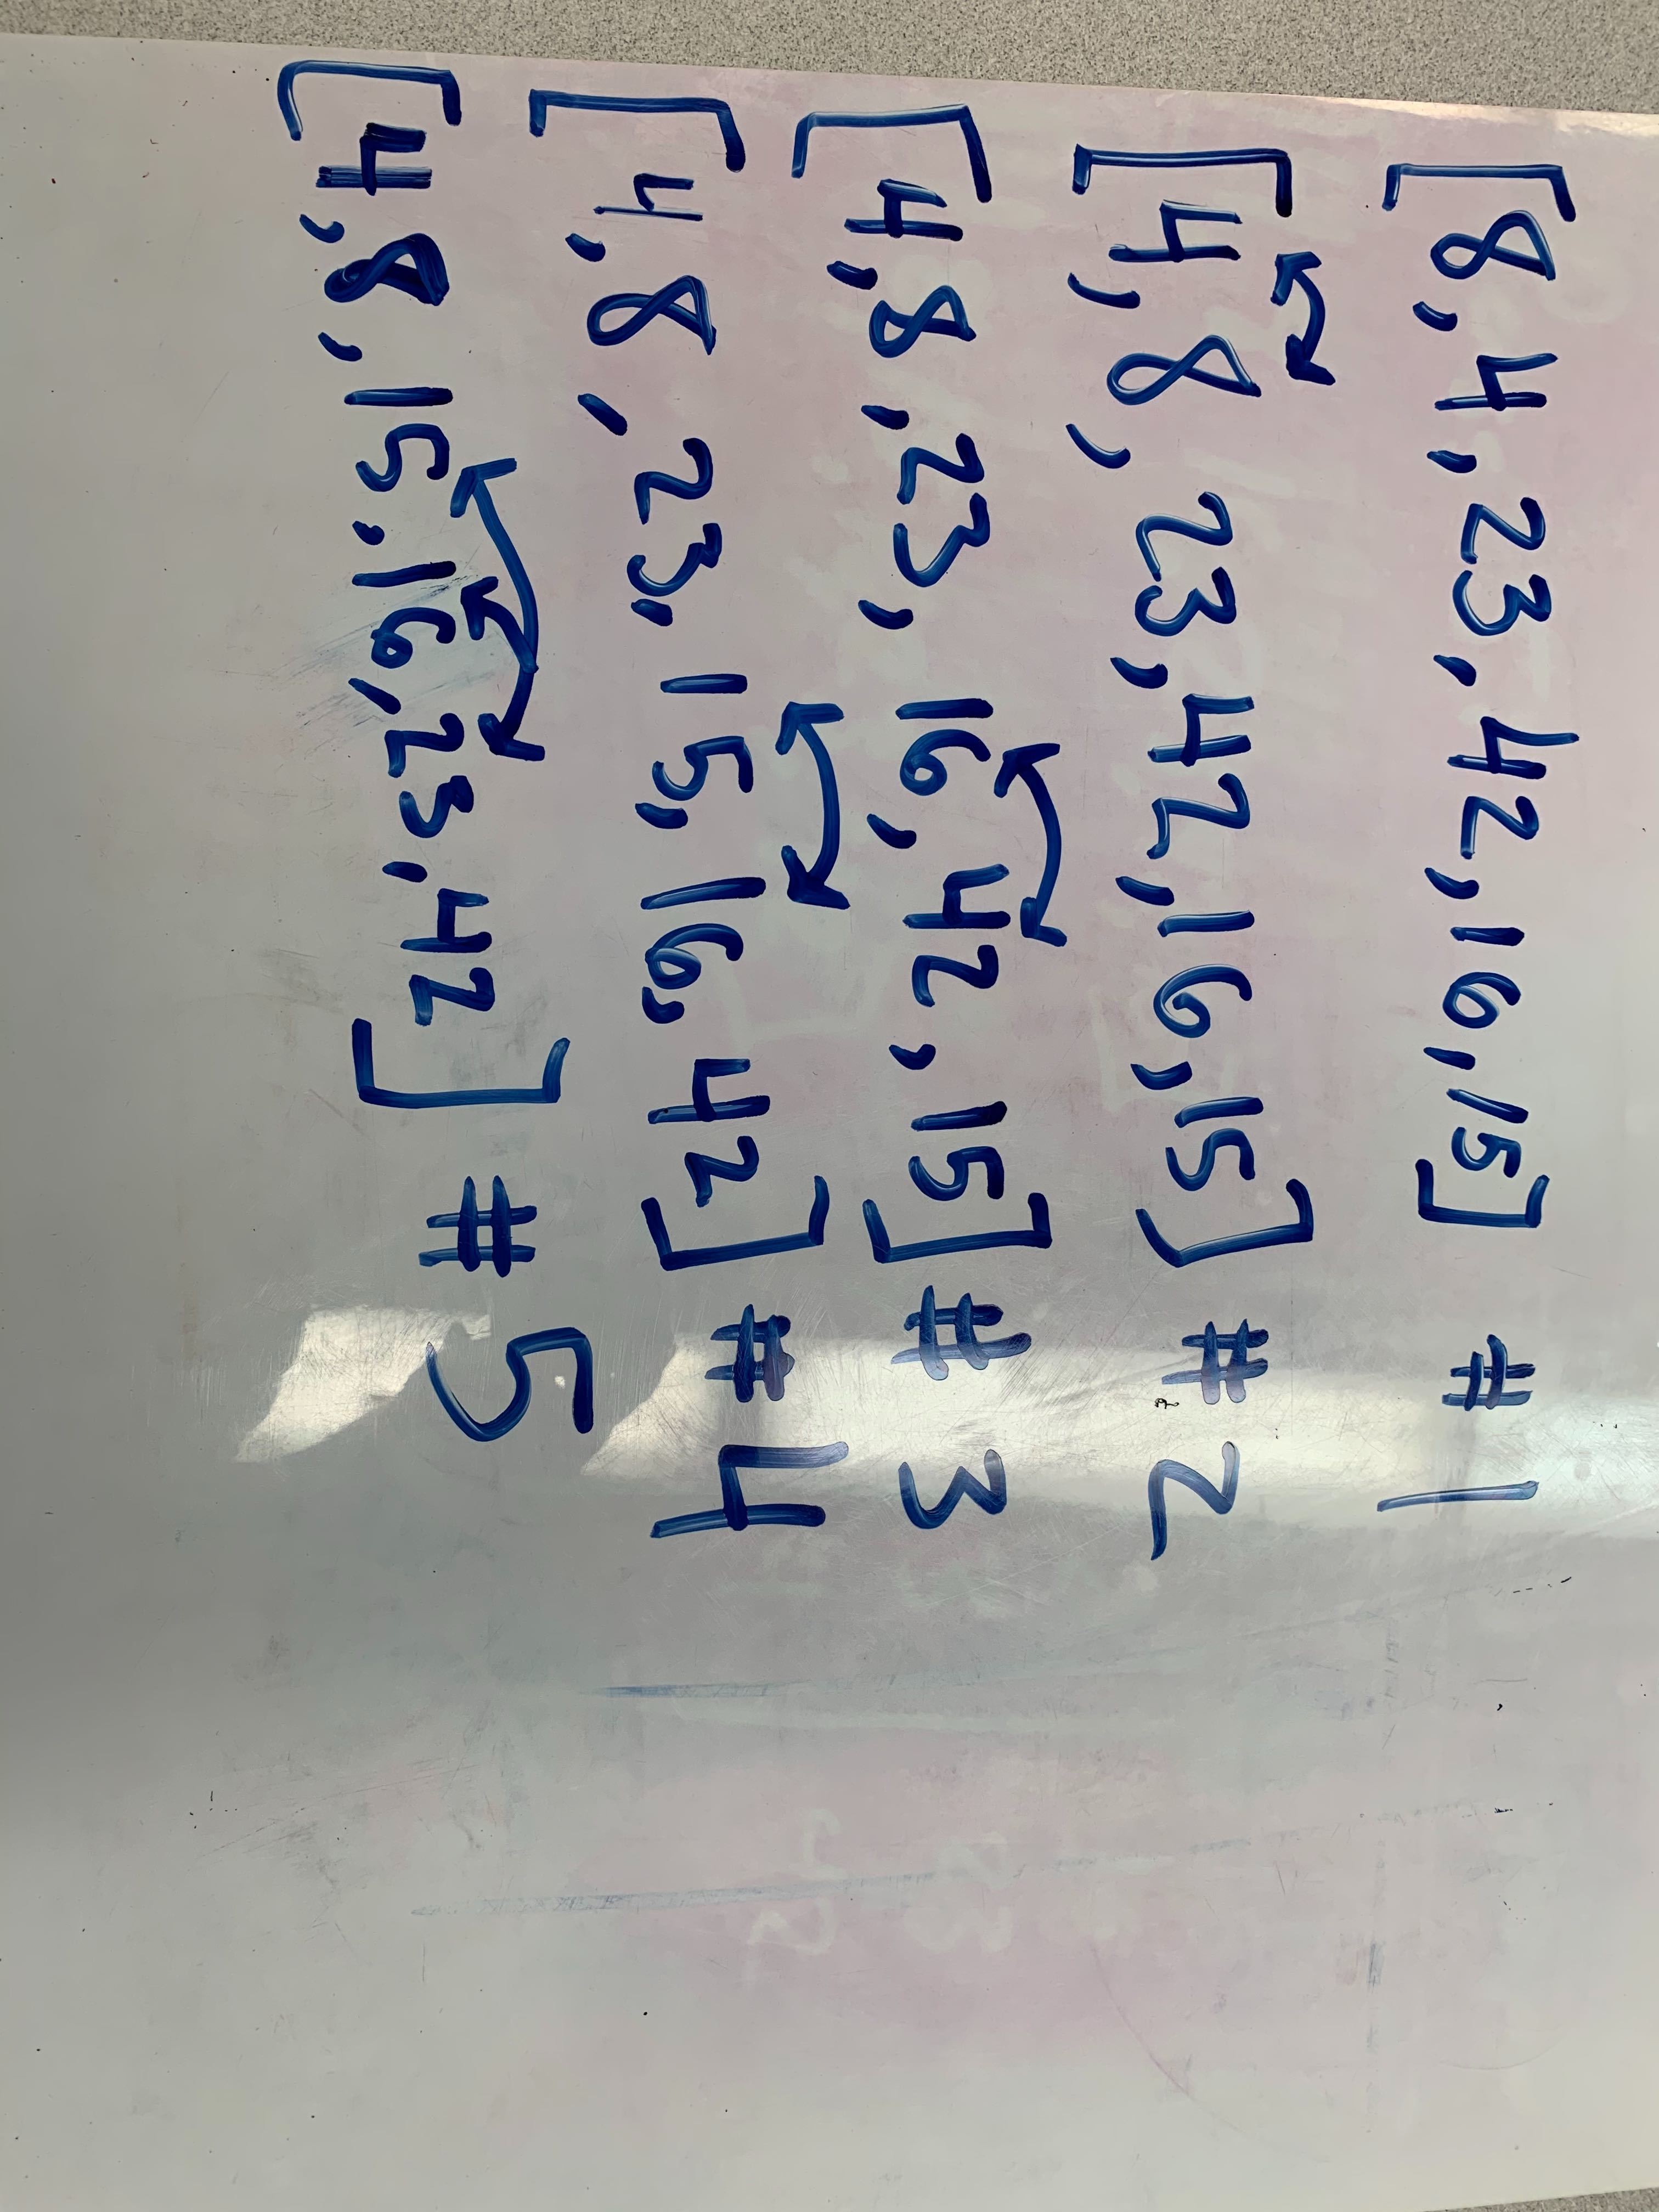 [8, 4, 23, 42, 16, 15] # 1
[4, 8, 23, 42, 16, 15] # 2
[4, 8, 23, 16, 42, 15] # 3
[4, 8, 23, 15, 16, 42] # 4
[4, 8, 15, 16, 23, 42] # 5